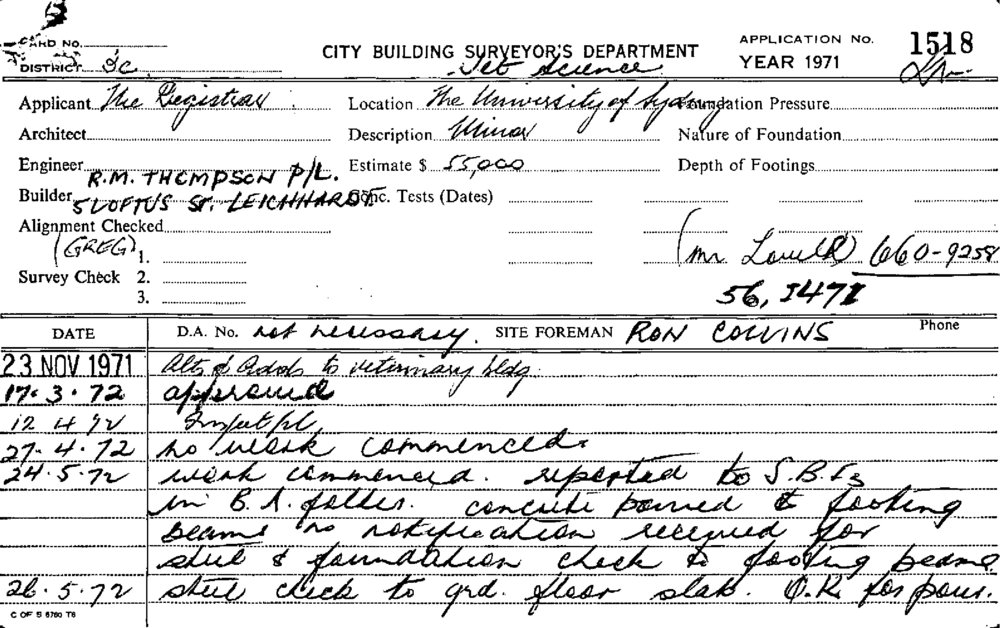 CARD NO.
DISTRICT Sc
CITY BUILDING SURVEYOR'S DEPARTMENT
Vet Science
APPLICATION No. 1518
YEAR 1971
Applicant The Registrar Location The University of Sydney Foundation Pressure
Architect Description Minor Nature of Foundation
Engineer Estimate $ 55,000 Depth of Footings
R.M. THOMPSON P/L.
Builder 5 LOFTUS ST. LEICHHARDT Conc. Tests (Dates)
Alignment Checked
(GREG) 1. (Mr 660-9258
Survey Check 2.
56, 3.
DATE D.A. No. not necessary. SITE FOREMAN RON COLLINS Phone
23 NOV 1971 Alts & Adds to veterinary bldg.
17.3.72 approved
12 4 72
27.4.72 no work commenced.
24.5.72 work commenced. reported to S.B.I
in B.A. folder. concrete poured to footing
beams no notification received for
steel & foundation check to footing beams
26.5.72 steel check to grd. floor slab. O.K. for pour.
C OF S 6760 T6